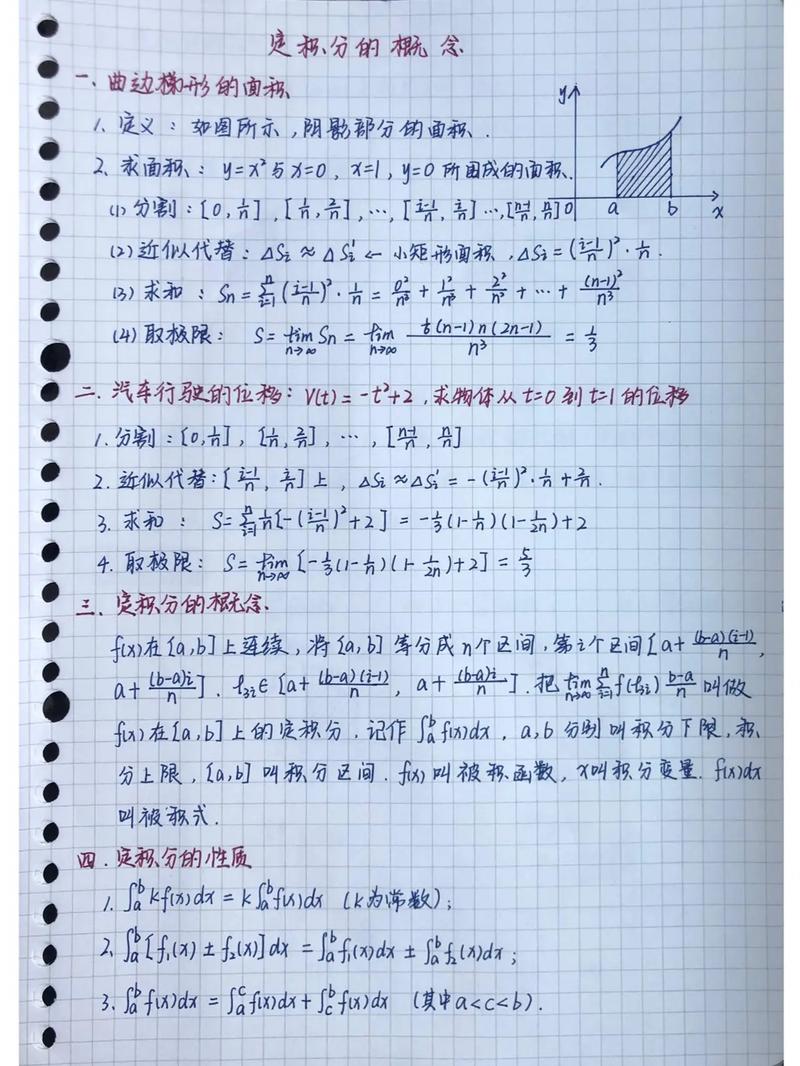 定积分的概念
一、曲边梯形的面积
1. 定义：如图所示，阴影部分的面积.
2. 求面积：y=x²与x=0，x=1，y=0所围成的面积.
(1) 分割：[0, 1/n]，[1/n, 2/n]，…，[i-1/n, i/n]…，[n-1/n, n/n]
(2) 近似代替：ΔSi≈ΔSi′←小矩形面积，ΔSi=(i-1/n)²·1/n.
(3) 求和：Sn=∑(i=1→n)(i-1/n)²·1/n=0²/n³+1²/n³+2²/n³+…+(n-1)²/n³
(4) 取极限：S=lim(n→∞)Sn=lim(n→∞) 1/6(n-1)n(2n-1)/n³=1/3
y
0
a
b
x
二、汽车行驶的位移：V(t)=-t²+2，求物体从t=0到t=1的位移
1. 分割：[0, 1/n]，[1/n, 2/n]，…，[n-1/n, n/n]
2. 近似代替：[i-1/n, i/n]上，ΔSi≈ΔSi′=-(i-1/n)²·1/n+2/n.
3. 求和：S=∑(i=1→n)1/n[-(i-1/n)²+2]=-1/3(1-1/n)(1-1/2n)+2
4. 取极限：S=lim(n→∞)[-1/3(1-1/n)(1-1/2n)+2]=5/3
三、定积分的概念
f(x)在[a,b]上连续，将[a,b]等分成n个区间，第i个区间[a+(b-a)(i-1)/n，
a+(b-a)i/n]. ∈[a+(b-a)(i-1)/n，a+(b-a)i/n]. 把lim(n→∞)∑(i=1→n)f( )b-a/n叫做
f(x)在[a,b]上的定积分. 记作∫ₐᵇf(x)dx，a,b分别叫积分下限，积
分上限，[a,b]叫积分区间. f(x)叫被积函数，x叫积分变量. f(x)dx
叫被积式.
四. 定积分的性质
1. ∫ₐᵇkf(x)dx=k∫ₐᵇf(x)dx (k为常数)；
2. ∫ₐᵇ[f₁(x)±f₂(x)]dx=∫ₐᵇf₁(x)dx±∫ₐᵇf₂(x)dx；
3. ∫ₐᵇf(x)dx=∫ₐᶜf(x)dx+∫꜀ᵇf(x)dx (其中a<c<b).